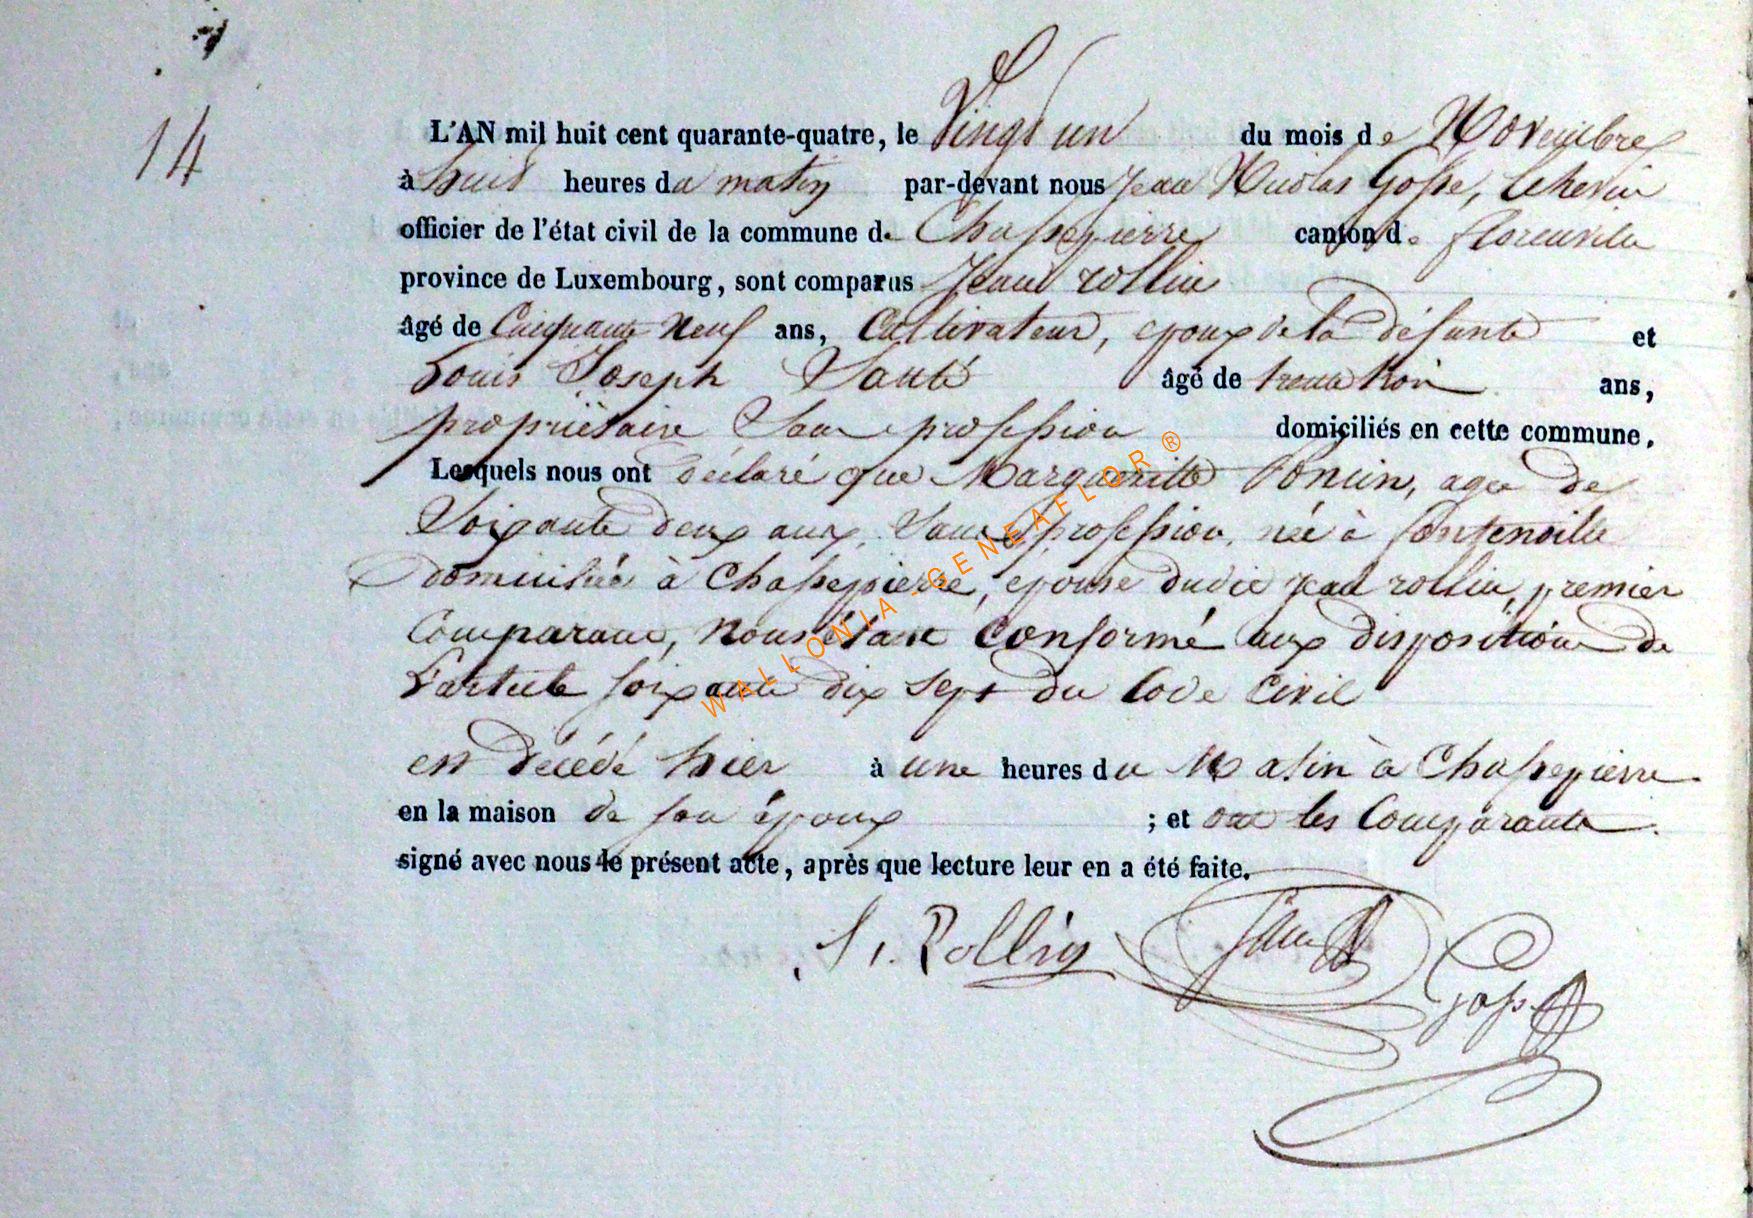 14
L'AN mil huit cent quarante-quatre, le Vingt un du mois de Novembre
à huit heures du matin par-devant nous Jean Nicolas Gosse, Echevin
officier de l'état civil de la commune de Chassepierre canton de florenville
province de Luxembourg, sont comparus Jean rollin
âgé de Cinquante Neuf ans, Cultivateur, epoux de la défunte et
Louis Joseph Santé âgé de trente trois ans,
propriétaire Sans profession domiciliés en cette commune.
Lesquels nous ont déclaré que Marguerite Poncin, agée de
Soixante deux ans, Sans profession, née à fontenoille
domiciliée à Chassepierre, epouse dudit jean rollin, premier
Comparant, Nous étant Conformé aux disposition de
L'article soixante dix sept du Code Civil
est décédé hier à une heures du Matin à Chassepierre
en la maison de son époux ; et ont les Comparants
signé avec nous le présent acte, après que lecture leur en a été faite.
J. Rollin Gosse
WALLONIA - GENEAFLOR ®